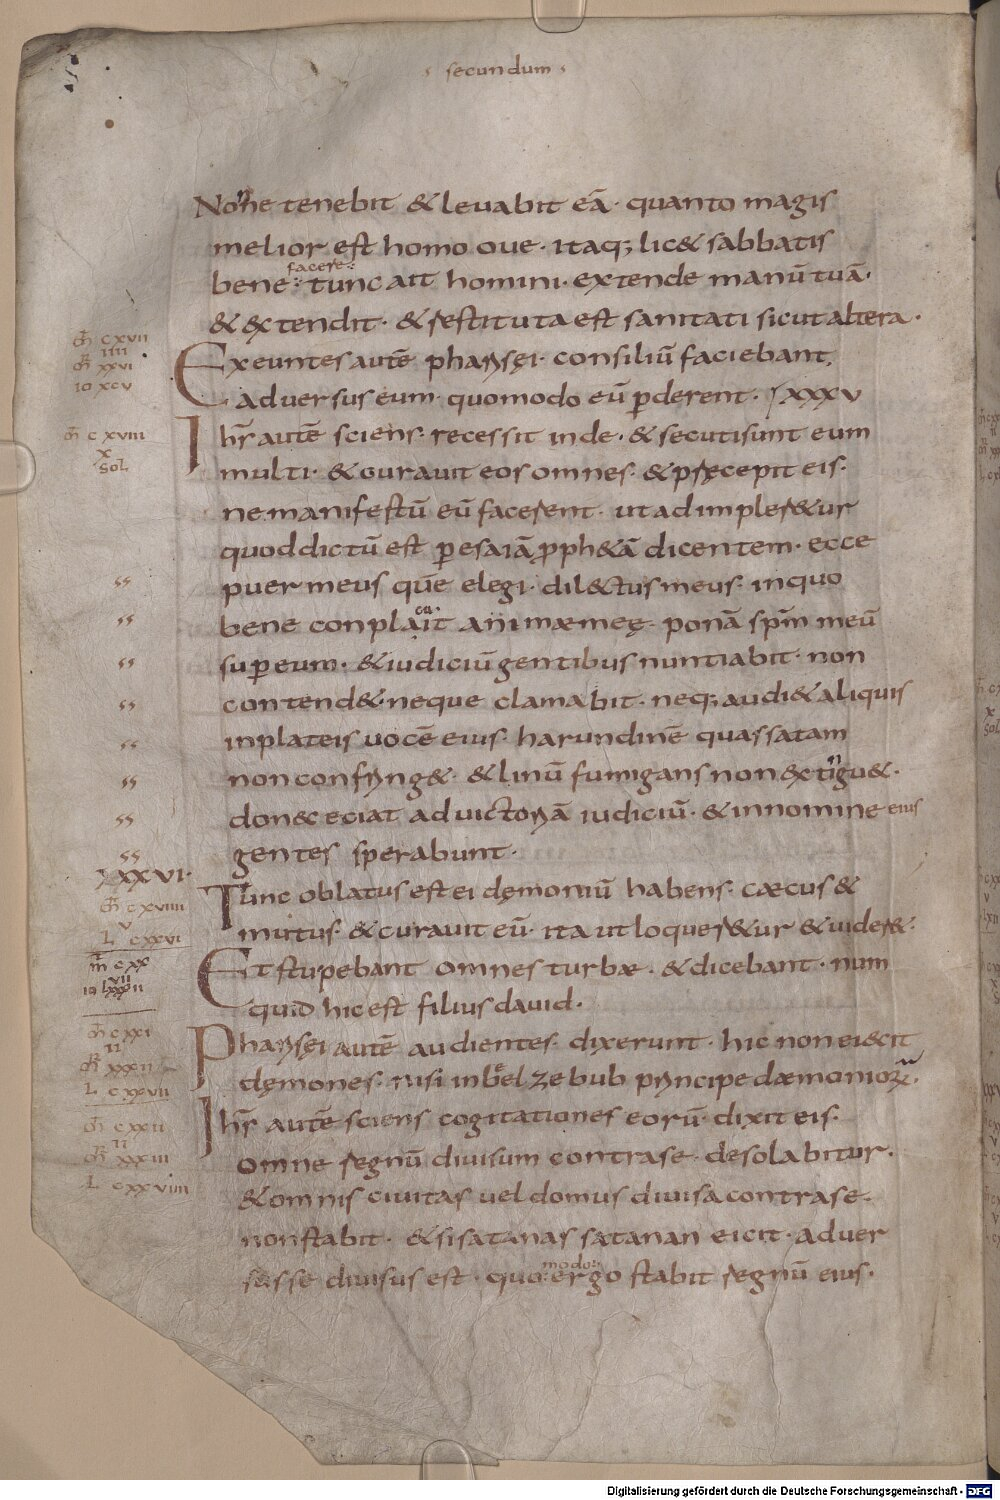 secundum
Nonne tenebit & leuabit eā· quanto magis
melior est homo oue· itaq; lic& sabbatis
bene facere: tunc ait homini· extende manū tuā·
& extendit· & restituta est sanitati sicut altera·
Exeuntes autē pharisęi· consiliū faciebant
aduersus eum· quomodo eū ꝑderent· XXXV
mh̄ cxvii
iiii
mr̄ xxvi
io xcv
Ihs̄ autē sciens· recessit inde· & secuti sunt eum
m̄ cxviii
x
sol
multi· & curauit eos omnes· & pręcepit eis·
ne manifestū eū facerent· ut adimpler&ur
quod dictū est ꝑ esaiā ꝓph&ā dicentem· ecce
puer meus quē elegi· dil&tus meus· in quo
bene conplacuit animæ meę· ponā sp̄m meū
suꝑ eum· & iudiciū gentibus nuntiabit· non
contend& neque clamabit· neq; audi& aliquis
in plateis uocē eius· harundinē quassatam
non confring&· & linū fumigans non extingu&·
donec eciat ad uictoriā iudiciū· & in nomine eius
gentes sperabunt·
XXXVI·
Tunc oblatus est ei dęmoniū habens· cæcus &
mh̄ cxviiii
v
L cxxvi
mutus· & curauit eū· ita ut loquer&ur & uider&·
Et stupebant omnes turbæ· & dicebant· num
m̄ cxx
vii
io lxxxii
quid hic est filius dauid·
Pharisęi autē audientes· dixerunt· hic non eicit
mh̄ cxxi
ii
mr̄ xxxii
L cxxvii
dęmones· nisi in beelzebub principe dæmoniorū·
Ihs̄ autē sciens cogitationes eorū· dixit eis·
mh̄ cxxii
ii
mr̄ xxxiii
L cxxviiii
omne regnū diuisum contra se· desolabitur·
& omnis ciuitas uel domus diuisa contra se·
non stabit· & si satanas satanan eicit· aduer
sus se diuisus est· quomodo: ergo stabit regnū eius·
Digitalisierung gefördert durch die Deutsche Forschungsgemeinschaft - DFG